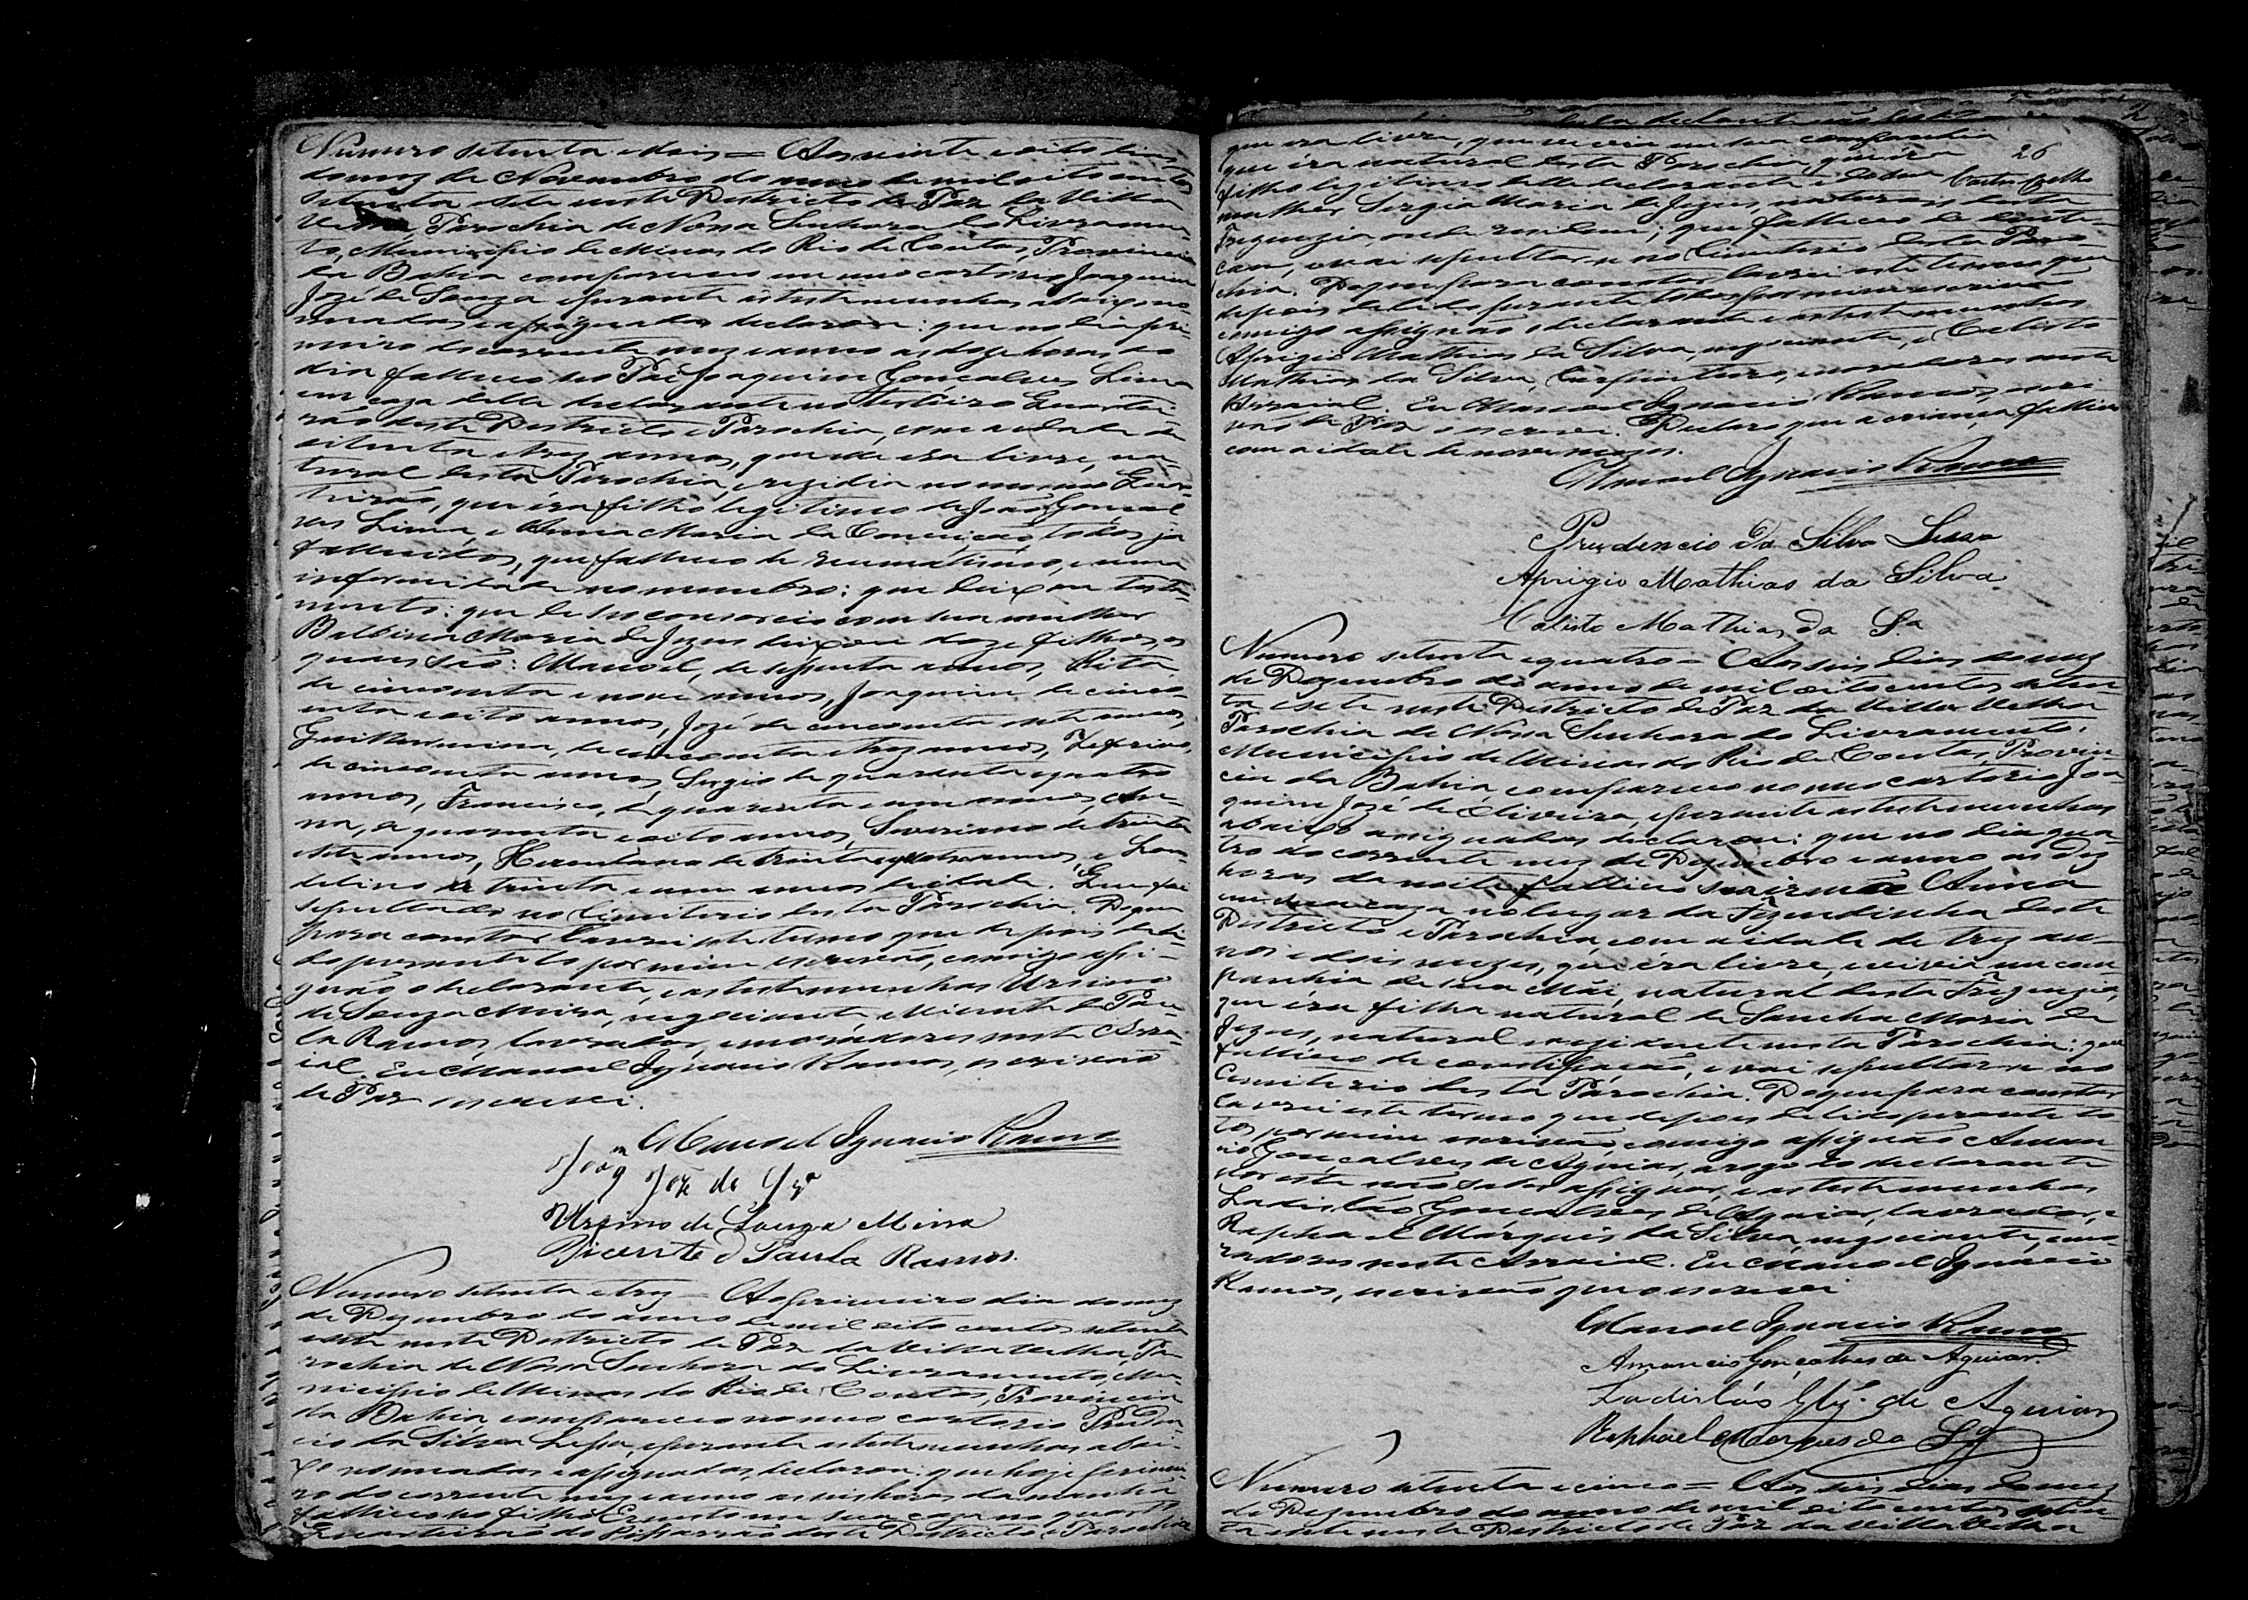 Numero setenta e dois = Aos vinte e oito dias
do mez de Novembro do anno de mil oito centos
setenta e sete neste Districto de Paz da Villa
Velha, Parochia de Nossa Senhora do Livramen-
to, Municipio de Minas do Rio de Contas, Provincia
da Bahia compareceu em meo cartorio Joaquim
José de Souza e perante as testemunhas abaixo no-
meadas e assignadas declarou: que no dia pri-
meiro do corrente mez e anno as doze horas do
dia falleceo seo Pai Joaquim Gonçalves Lima
em caza delle declarante no terceiro Quartei-
rão deste Districto e Parochia, com a idade de
oitenta e trez annos, que elle era livre, na-
tural desta Parochia, e rezidia no mesmo Quar-
teirão, que éra filho legitimo de João Gonsal-
ves Lima, e Anna Maria da Conceição todos já
fallecidos, que falleceo de reumatismo, e uma
infermidade no membro: que deixou testa-
mento: que de seo consorcio com sua mulher
Balbina Maria de Jezus deixou doze filhos, os
quaes são: Manoel, de sessenta annos, Rita,
de cincoenta e nove annos, Joaquim de cinco-
enta e oito annos, José de cincoenta e sete annos,
Guilhermina, de cincoenta e trez annos, Zeferino,
de cincoenta annos, Sergio de quarenta e quatro
annos, Francisco, de quarenta e um annos, An-
na, de quarenta e oito annos, Severiano de trinta
e sete annos, Herculana de trinta e quatro annos, e Lau-
delino de trinta e um annos de idade. Que foi
sepultado no Cemiterio desta Parochia. Do que
para constar lavrei este termo que depois de li-
do perante todos por mim escrivão, comigo assi-
gnão o declarante, e as testemunhas Ursino
de Souza Meira, negociante, e Vicente de Pau-
la Ramos, lavrador, moradores neste Arra-
ial. Eu Manoel Ignacio Ramos, escrivão
de Paz escrevi.
Manoel Ignacio Ramos
Joaqm José de Sza
Ursino de Souza Meira
Vicente d Paula Ramos.
Numero setenta e trez = Ao primeiro dia do mez
de Dezembro do anno de mil oito centos setenta
e sete neste Districto de Paz da Villa Velha, Pa-
rochia de Nossa Senhora do Livramento, Mu-
nicipio de Minas do Rio de Contas, Provincia
da Bahia, compareceo no meo cartorio Pruden-
cio da Silva Lessa, e perante as testemunhas abai-
xo nomeadas e assignadas, declarou: que hoje primei-
ro do corrente mez e anno as seis horas da manhã
falleceo seo filho Ernesto em sua caza no quarto
Quarteirão do deste Districto e Parochia
26
que era livre, que vivia em sua companhia
que éra natural desta Parochia, que éra
filho legitimo delle declarante e de sua
mulher Sergia Maria de Jezus, naturaes desta
Freguezia, onde rezidem; que falleceo de
e vai sepultar-se no Cemiterio desta Paro-
chia. Do que para constar lavrei este termo que
depois de lido perante todos por mim escrivão
comigo assignão o declarante e as testemunhas
Aprigio Mathias da Silva, negociante, e Calisto
Mathias da Silva, Carpinteiro, moradores neste
Arraial. Eu Manoel Ignacio Ramos, escri-
vão de Paz o escrevi. Declaro que a criança falleceo
com a idade de nove mezes.
Manoel Ignacio Ramos
Prudencio da Silva Lessa
Aprigio Mathias da Silva
Calisto Mathias da Sa
Numero setenta e quatro = Aos seis dias do mez
de Dezembro do anno de mil oito centos seten-
ta e sete neste Districto de Paz da Villa Velha
Parochia de Nossa Senhora do Livramento,
Municipio de Minas do Rio de Contas, Provin-
cia da Bahia compareceo no meo cartorio Joa-
quim José de Oliveira, e perante as testemunhas
abaixo assignadas declarou: que no dia qua-
tro do corrente mez de Dezembro e anno as dez
horas da noite falleceo sua irmã Anna
em sua caza no lugar da Fazendinha deste
Districto e Parochia, com a idade de trez an-
nos e dois mezes, que éra livre, e vivia em com-
panhia de sua Mãi, natural desta Freguezia,
que éra filha natural de Sancha Maria de
Jezus, natural e rezidente nesta Parochia: que
falleceo de constipação, e vai sepultar-se no
Cemiterio desta Parochia. Do que para constar
lavrei este termo que depois de lido perante to-
dos por mim escrivão, comigo assignão Aman-
cio Gonçalves de Aguiar, a rogo do declarante
por este não saber assignar, e as testemunhas
Ladisláo Gonçalves de Aguiar, lavrador, e
Raphael Marques da Silva, negociante, mo-
radores neste Arraial. Eu Manoel Ignacio
Ramos, escrivão que o escrevi
Manoel Ignacio Ramos
Amancio Gonçalves de Aguiar.
Ladisláo Glz. de Aguiar
Raphael Marques da Sa
Numero setenta e cinco = Aos seis dias do mez
de Dezembro do anno de mil oito centos seten-
ta e sete neste Districto de Paz da Villa Velha